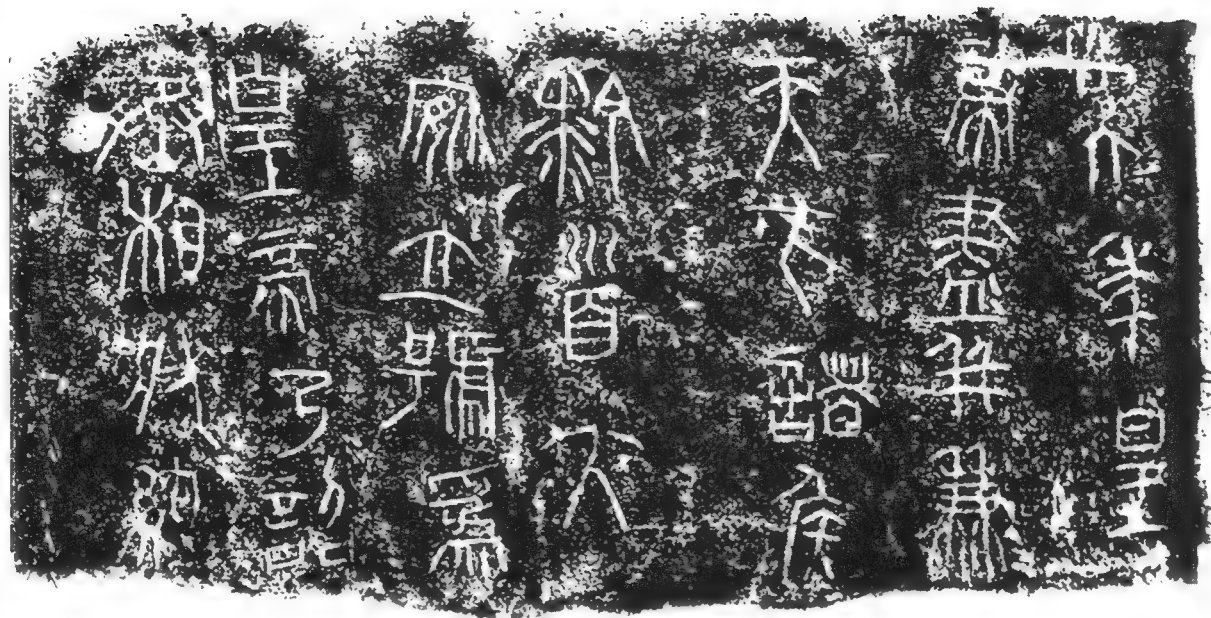 廿六年皇
帝盡并兼
天下諸侯
黔首大
安立號為
皇帝乃詔
丞相狀綰